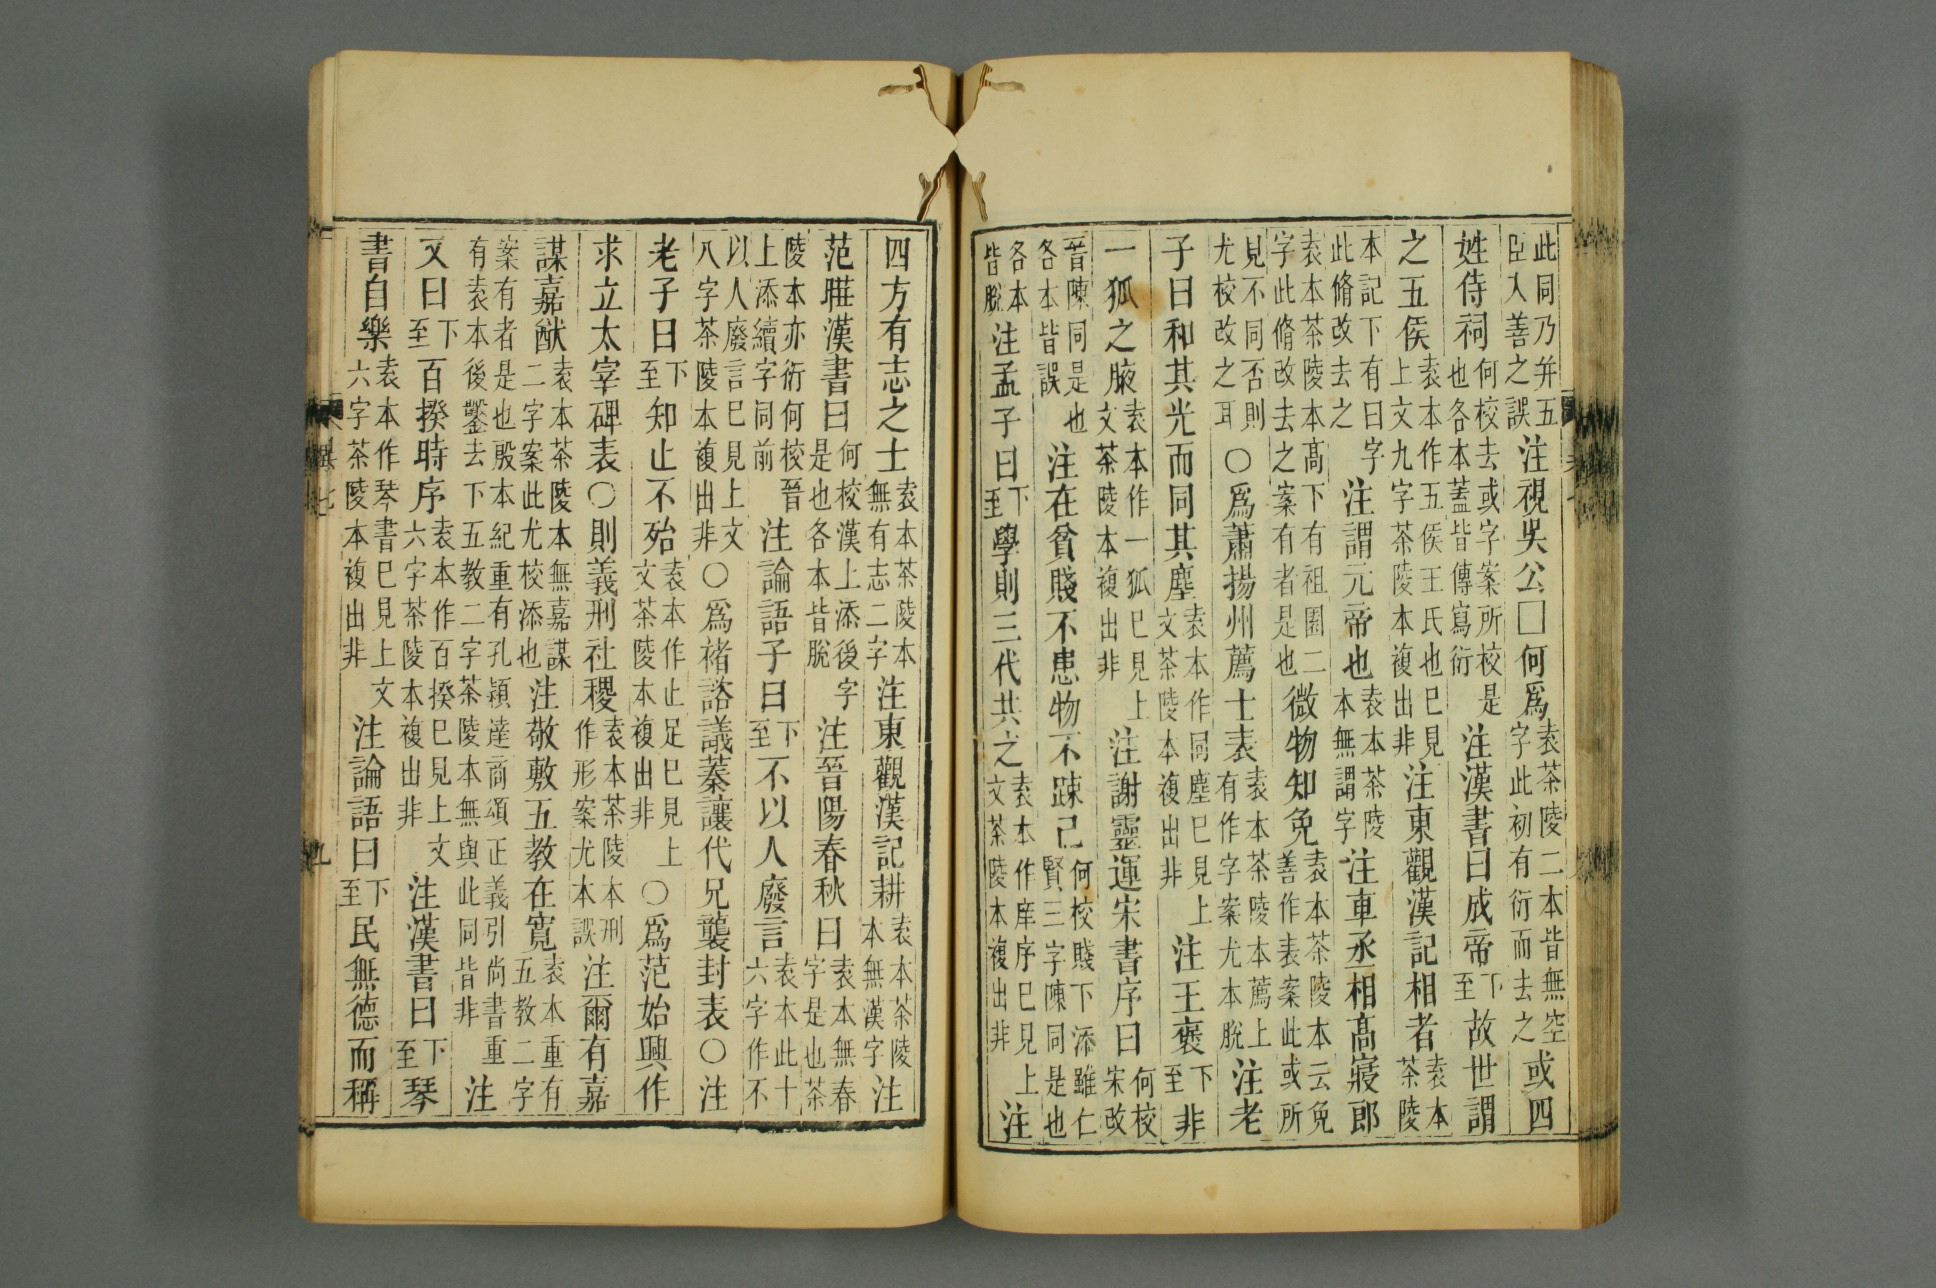 此同乃并五臣入善之誤注視吳公□何爲袁茶陵二本皆無空字此初有衍而去之或四
姓侍祠何校去或字案所校是也各本蓋皆傳寫衍注漢書曰成帝下至故世謂
之五侯袁本作五侯王氏也已見上文九字茶陵本複出非注東觀漢記相者袁本茶陵
本記下有曰字此脩改去之注謂元帝也袁本茶陵本無謂字注車丞相高寢郎
袁本茶陵本高下有祖園二字此脩改去之案有者是也微物知免袁本茶陵本云免善作表案此或所
見不同否則尤校改之耳〇爲蕭揚州薦士表袁本茶陵本薦上有作字案尤本脫注老
子曰和其光而同其塵袁本作同塵已見上文茶陵本複出非注王褒下至非
一狐之腋袁本作一狐已見上文茶陵本複出非注謝靈運宋書序曰何校宋改
晉陳同是也各本皆誤注在貧賤不患物不疎己何校賤下添雖仁賢三字陳同是也
各本皆脫注孟子曰下至學則三代共之袁本作庠序已見上文茶陵本複出非注
四方有志之士袁本茶陵本無有志二字注東觀漢記耕袁本茶陵本無漢字注
范曄漢書曰何校漢上添後字是也各本皆脫注晉陽春秋曰袁本無春字是也茶
陵本亦衍何校晉上添續字同前注論語子曰下至不以人廢言袁本此十六字作不
以人廢言已見上文八字茶陵本複出非〇爲褚諮議蓁讓代兄襲封表〇注
老子曰下至知止不殆袁本作止足已見上文茶陵本複出非〇爲范始興作
求立太宰碑表〇則義刑社稷袁本茶陵本刑作形案尤本誤注爾有嘉
謀嘉猷袁本茶陵本無嘉謀二字案此尤校添也注敬敷五教在寬袁本重有五教二字
案有者是也殷本紀重有孔穎達商頌正義引尚書重有袁本後鑿去下五教二字茶陵本無與此同皆非注
又曰下至百揆時序袁本作百揆已見上文六字茶陵本複出非注漢書曰下至琴
書自樂袁本作琴書已見上文六字茶陵本複出非注論語曰下至民無德而稱